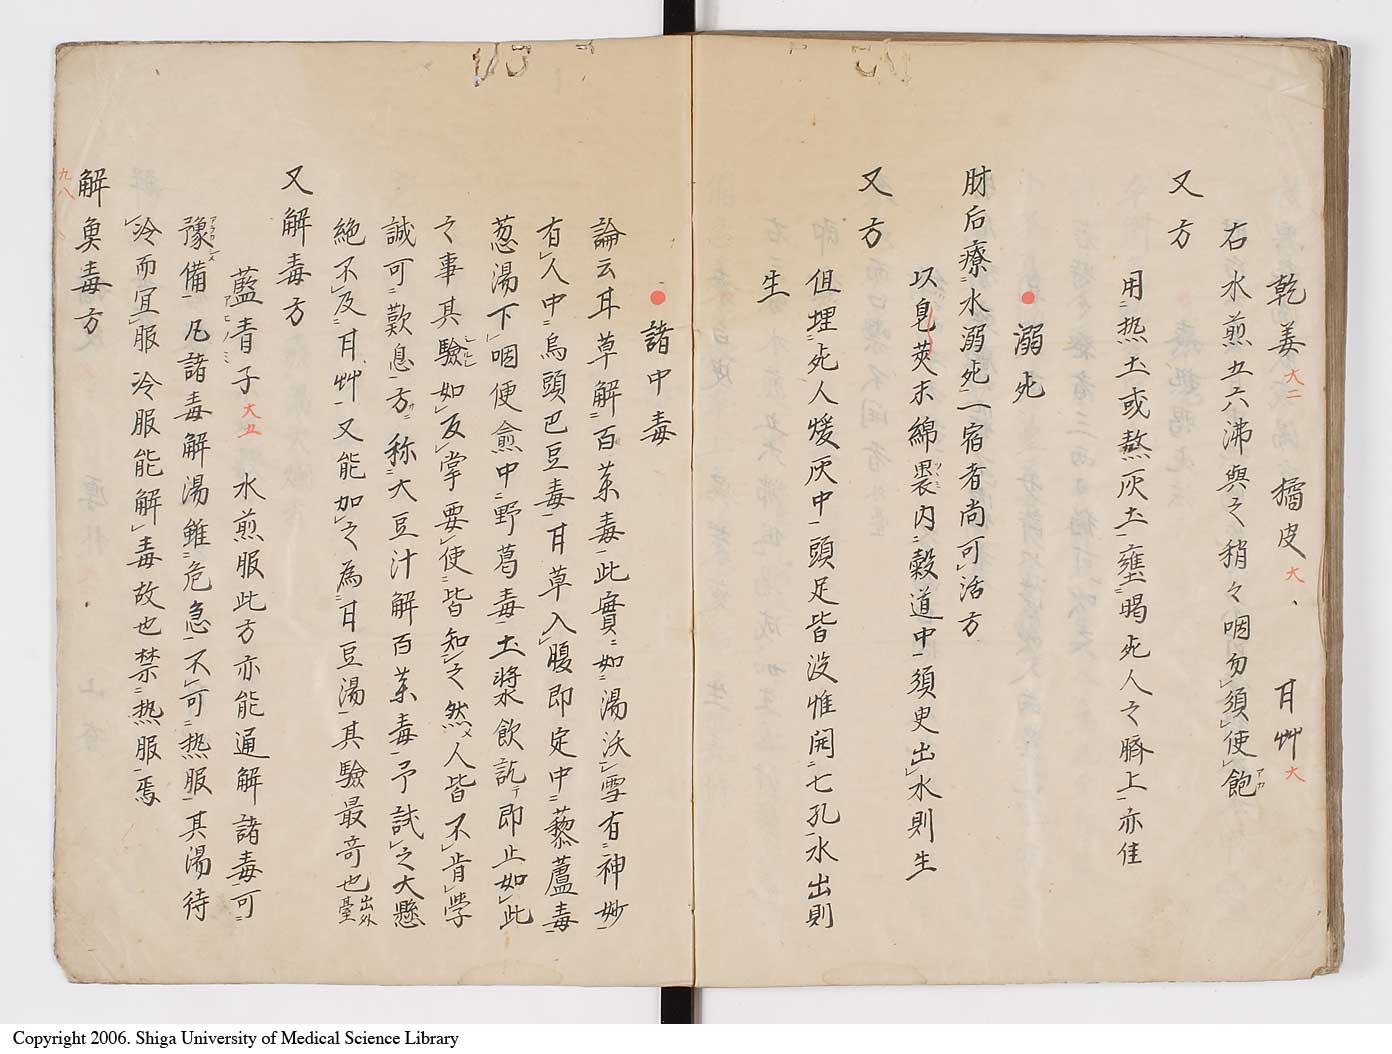 乾姜大二 橘皮大、 甘艸大
右水煎五六沸與之稍々咽勿須使飽アカ
又方
用熱土或熬灰土壅暍死人之臍上亦佳
溺死
肘后療水溺死一宿者尚可活方
以皂莢末綿裹内穀道中須臾出水則生
又方
但埋死人煖灰中頭足皆没惟開七孔水出則
生
諸中毒
論云甘草解百薬毒此實如湯沃雪有神妙
有人中烏頭巴豆毒甘草入腹即定中藜蘆毒
葱湯下咽便愈中野葛毒土漿飲訖即止如此
之事其驗如反掌要使皆知之然人皆不肯学
誠可歎息方称大豆汁解百薬毒予試之大懸
絶不及甘艸又能加之為甘豆湯其驗最奇也出外臺
又解毒方
藍青子大五 水煎服此方亦能通解諸毒可
豫備凡諸毒解湯雖危急不可熱服其湯待
冷而宜服冷服能解毒故也禁熱服焉
解魚毒方
九八
Copyright 2006. Shiga University of Medical Science Library